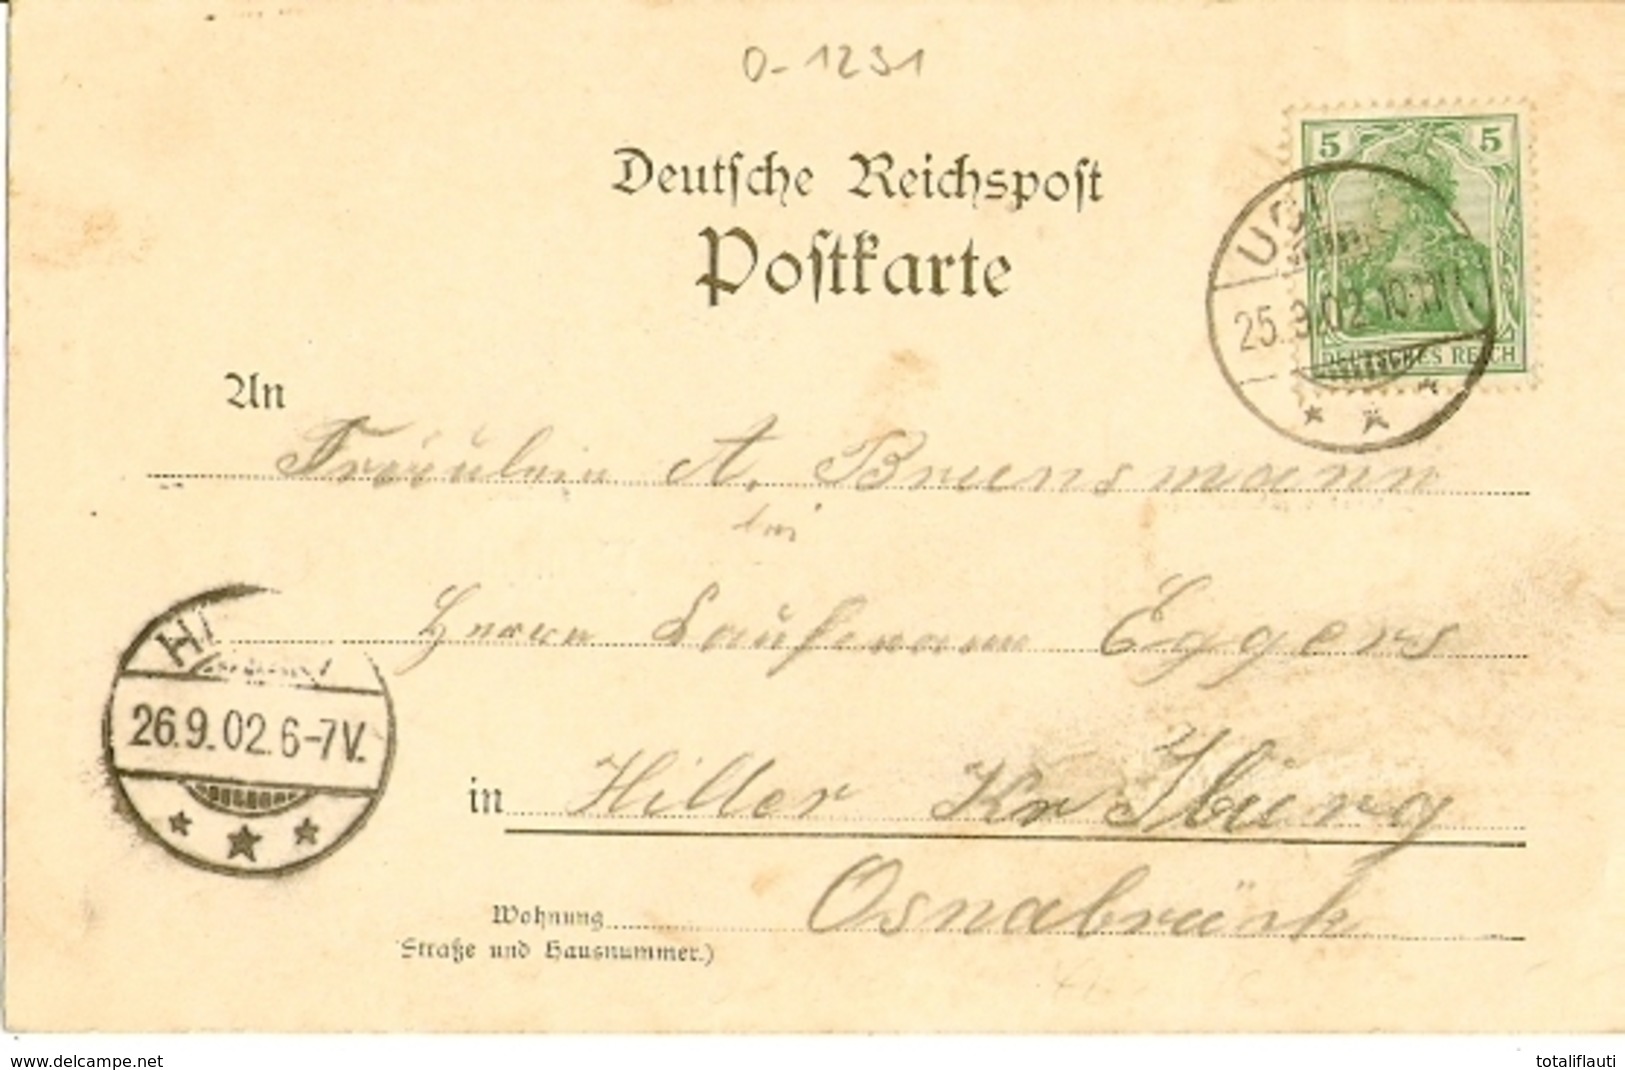 0-1231
Deutsche Reichspost
Postkarte
5 5
25.9.02 10-11V.
DEUTSCHES REICH
An
Fräulein A. Brunsmann
bei
Herrn Kaufmann Eggers
26.9.02. 6-7V.
in Hilter Kr Iburg
Osnabrück
Wohnung
Straße und Hausnummer.)
www.delcampe.net
totaliflauti